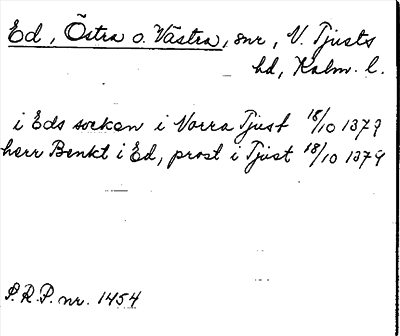 Ed, Östra o. Västra, snr, N. Tjusts
hd, Kalm. l.
i Eds socken i Norra Tjust 18/10 1379
herr Benkt i Ed, prost i Tjust 18/10 1379
S.R.P. nr. 1454